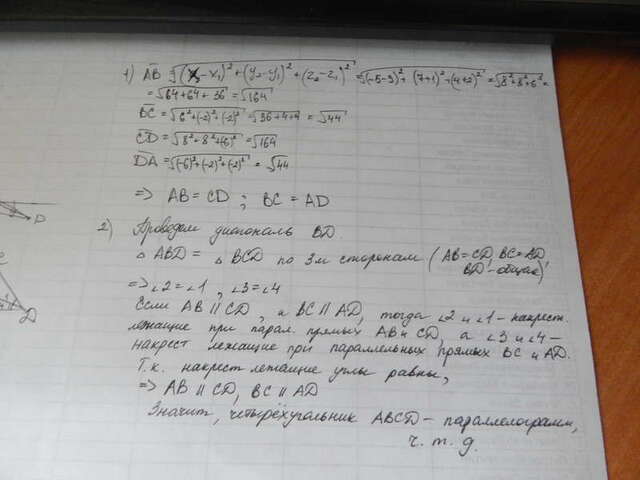 1) AB = √(x₂-x₁)²+(y₂-y₁)²+(z₂-z₁)² = √(-5-3)²+(7+1)²+(4+2)² = √8²+8²+6² =
= √64+64+36 = √164
BC = √6²+(-2)²+(-2)² = √36+4+4 = √44
CD = √8²+8²+(6)² = √164
DA = √(-6)²+(-2)²+(-2)² = √44
=> AB = CD ; BC = AD
D
2) Проведем диагональ BD.
△ ABD = △ BCD по 3м сторонам (AB=CD, BC=AD
BD-общая)
=> ∠2=∠1, ∠3=∠4
D
Если AB || CD, а BC || AD, тогда ∠2 и ∠1 - накрест.
лежащие при парал. прямых AB и CD, а ∠3 и ∠4 -
накрест лежащие при параллельных прямых BC и AD.
Т.к. накрест лежащие углы равны,
=> AB || CD, BC || AD
Значит, четырёхугольник ABCD - параллелограмм,
ч.т.д.